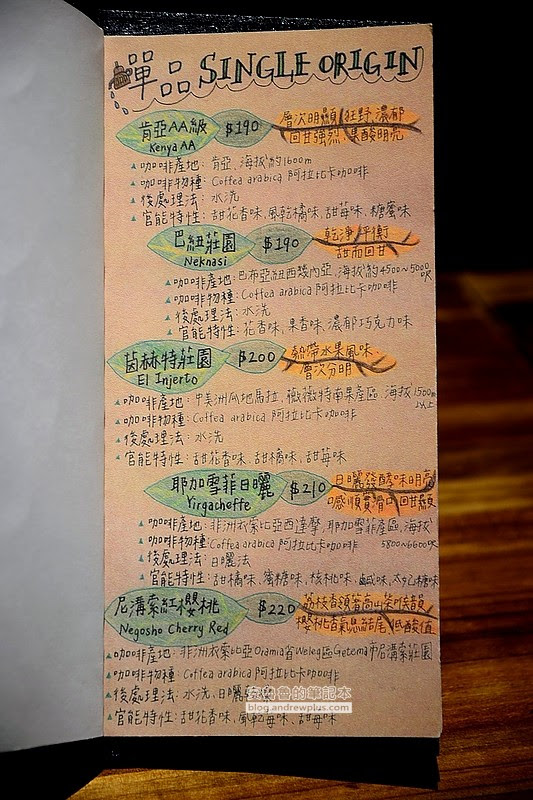 單品 SINGLE ORIGIN
肯亞AA級 $190 層次明顯 狂野 濃郁
Kenya AA 回甘強烈 果酸明亮
▲咖啡產地: 肯亞、海拔約1600m
▲咖啡物種: Coffea arabica 阿拉比卡咖啡
▲後處理法: 水洗
▲官能特性: 甜花香味、風乾橘味、甜莓味、糖蜜味
巴紐莊園 $190 乾淨 平衡
Neknasi 甜而回甘
▲咖啡產地: 巴布亞紐西幾內亞、海拔約4500~5000呎
▲咖啡物種: Coffea arabica 阿拉比卡咖啡
▲後處理法: 水洗
▲官能特性: 花香味、果香味、濃郁巧克力味
茵赫特莊園 $200 熱帶水果風味
El Injerto 層次分明
▲咖啡產地: 中美洲瓜地馬拉、薇薇特南果產區、海拔1500m以上
▲咖啡物種: Coffea arabica 阿拉比卡咖啡
▲後處理法: 水洗
▲官能特性: 甜花香味、甜橘味、甜莓味
耶加雪菲日曬 $210 日曬發酵味明亮
Yirgacheffe 口感順實滑 回甘顯
▲咖啡產地: 非洲衣索比亞西達摩、耶加雪菲產區、海拔
▲咖啡物種: Coffea arabica 阿拉比卡咖啡 5800~6600呎
▲後處理法: 日曬法
▲官能特性: 甜橘味、蜜糖味、核桃味、鹹味、太妃糖味
尼溝索紅櫻桃 $220 荔枝香領著高山茶喉韻
Negosho Cherry Red 櫻桃香氣思結尾 低酸值
▲咖啡產地: 非洲衣索比亞Oramia省Weleg區Getema市尼溝索莊園
▲咖啡物種: Coffea arabica 阿拉比卡咖啡
▲後處理法: 水洗、日曬
▲官能特性: 甜花香味、風乾莓味、甜莓味
安魯普的筆記本
blog.andrewplus.com